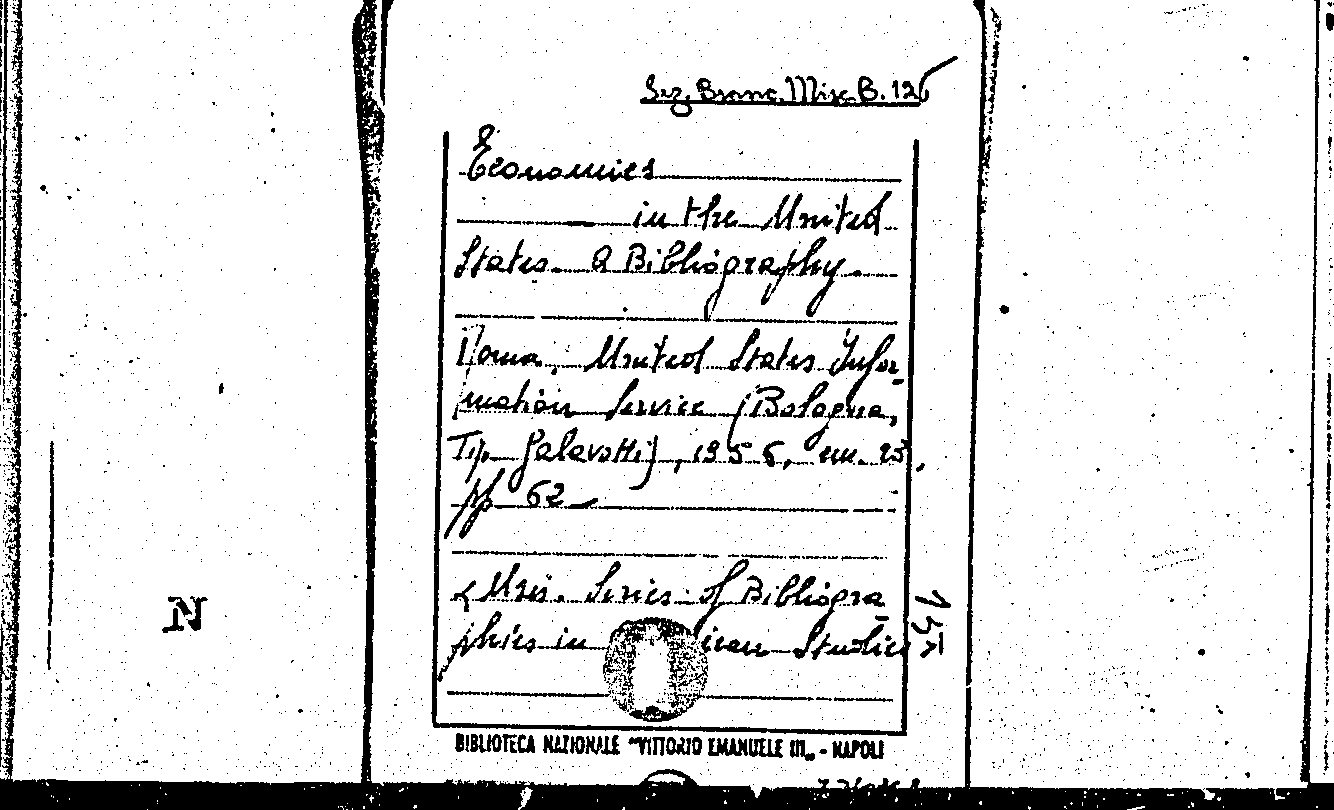 Sez. Branc. Misc. B. 126
Economics
in the United
States. A Bibliography.
Roma, United States Infor-
mation Service (Bologna,
Tip. Galavotti), 1956, cm. 23,
pp. 62
<Usis. Series of Bibliogra-
phies in ican Studies>
N
BIBLIOTECA NAZIONALE "VITTORIO EMANUELE III„ - NAPOLI